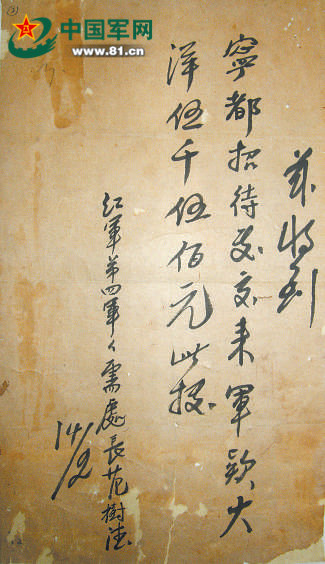 (2)
中国军网
www.81.cn
兹收到
寧都招待处交来軍款大
洋伍千伍佰元此据
红軍第四軍々需處長范樹德
14/2